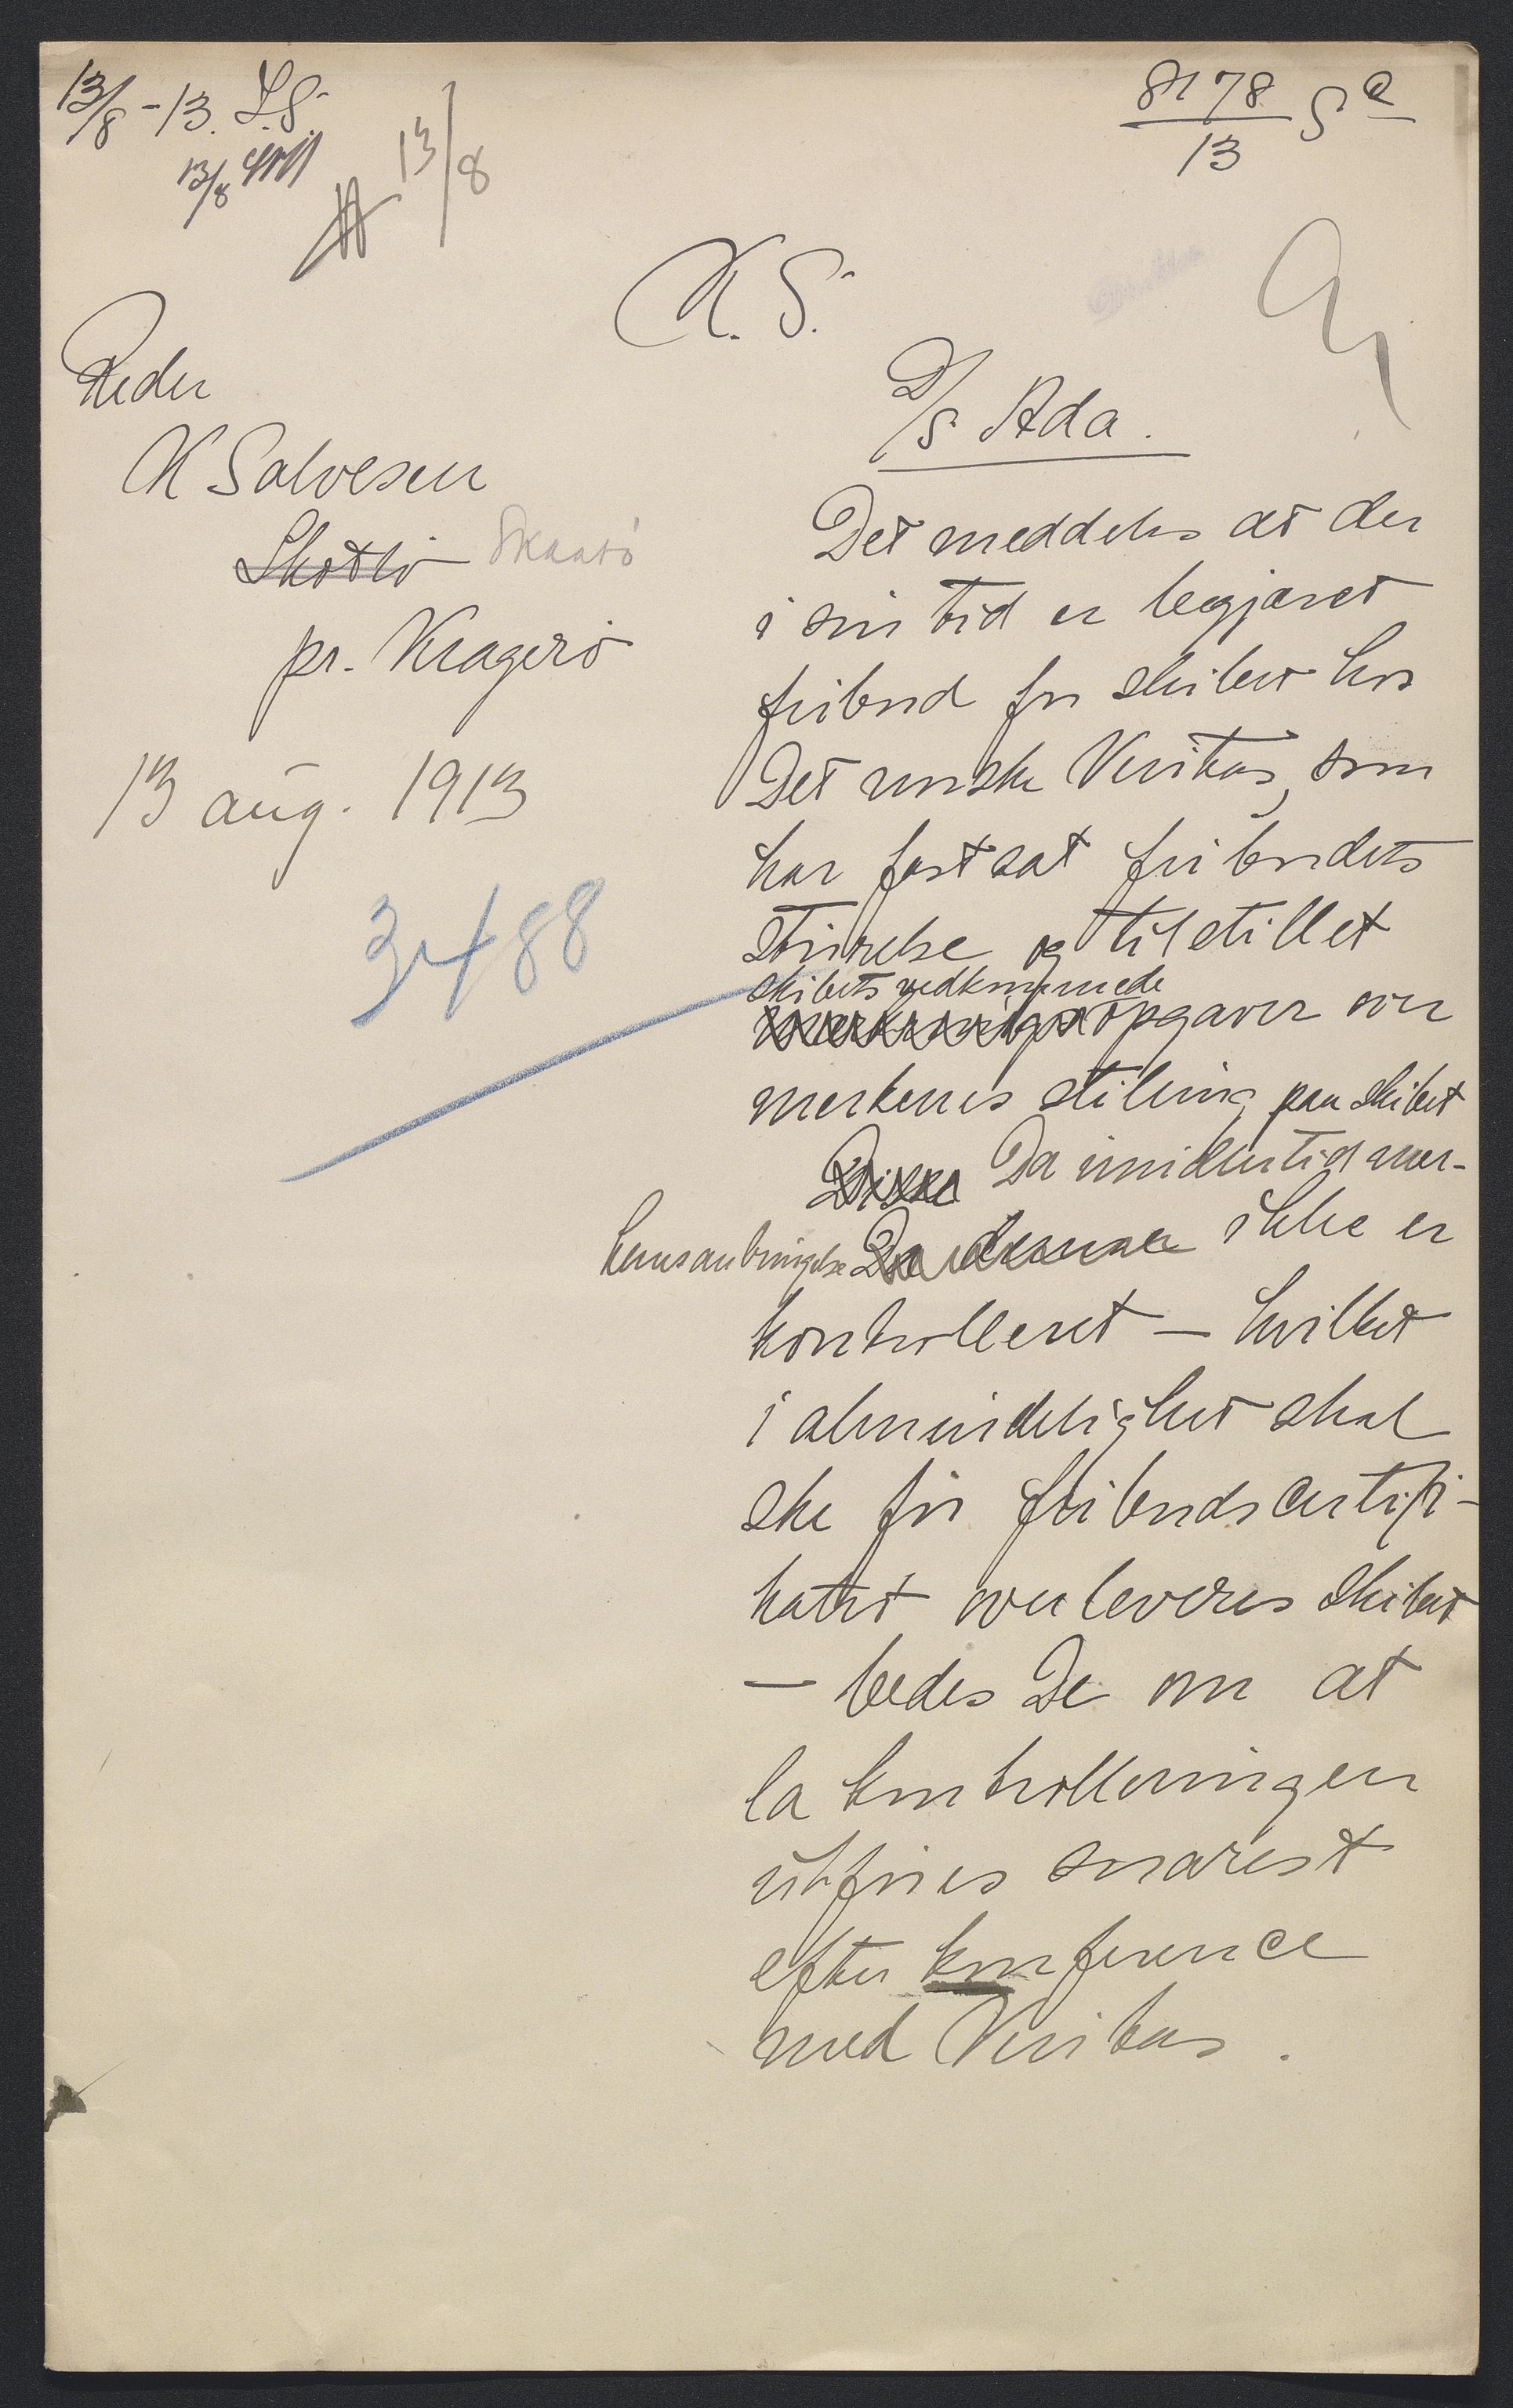 13/8 - 13. L.S.
13/8
13/8
8178 S a
13
K. S.
Reder
K Salvesen
Skåtø Skaatö
pr. Kragerö
13 aug. 1913
3488
D/S Ada.
Det meddeles at der
i sin tid er begjæret
fribord for skibet hos
Det norske Veritas, som
har fastsat fribordets
störrelse og tilstillet
skibets vedkommende
merknings opgaver over
merkenes stilling paa skibet
Disse Da imidlertid mer-
kenes anbringelse Da denne ikke er
kontrolleret — hvilket
i almindelighet skal
ske för fribordscertifi-
katet overleveres skibet
— bedes De om at
la kontrolleringen
utföres snarest
efter konference
med Veritas.